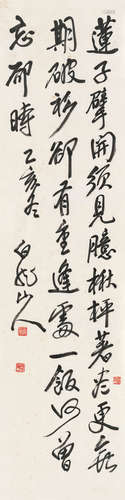 蓮子擘開須見臆楸枰著盡更無
期破衫卻有重逢處一飯何曾
忘卻時 乙亥冬 白龍山人